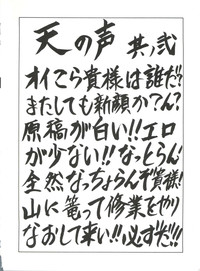 天の声 其ノ弐
オイこら貴様は誰だ!?
またしても新顔か?ん?
原稿が白い!!エロ
が少ない!!なっとらん!
全然なっちょらんぞ貴様!
山に篭って修業をやり
なおして来い!!必ずだ!!!